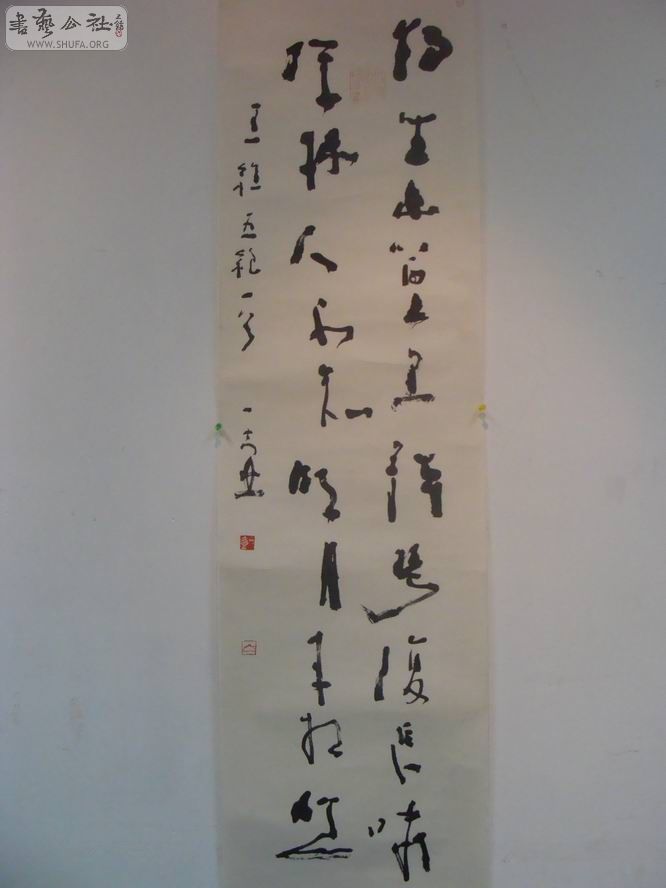 書藝公社
WWW.SHUFA.ORG
独坐幽篁里彈琴復長嘯
深林人不知明月来相照
王維五絕一首